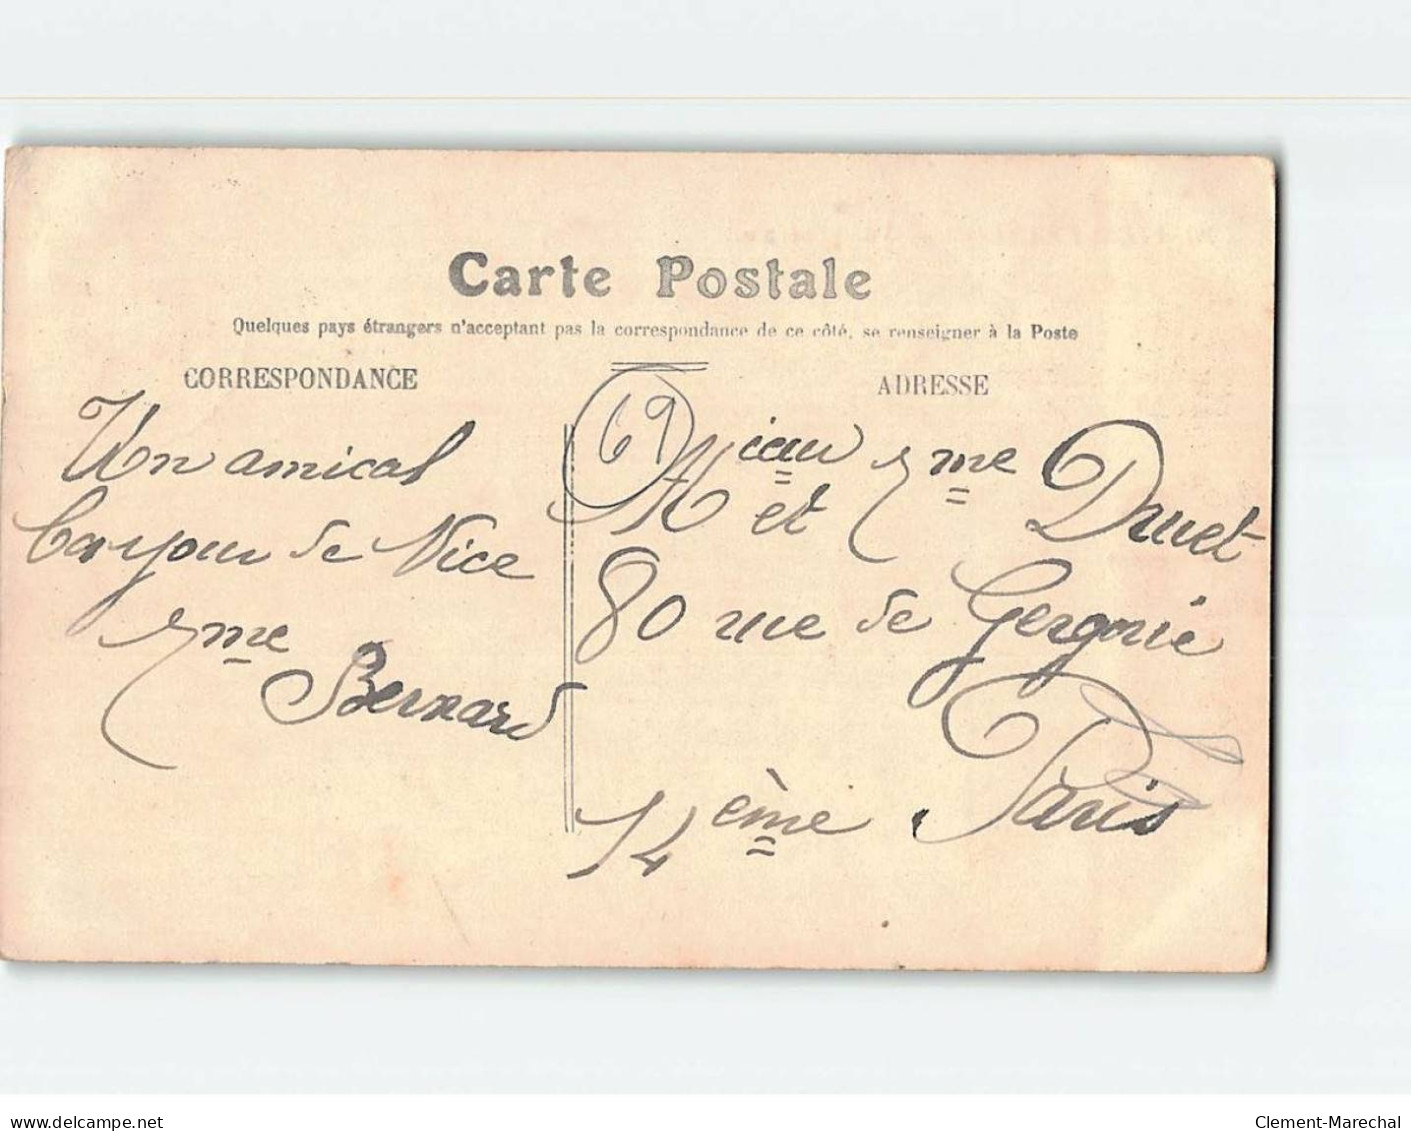 Carte Postale
Quelques pays étrangers n'acceptant pas la correspondance de ce côté, se renseigner à la Poste
CORRESPONDANCE
Un amical
bonjour de Nice
Mme
Bernard
ADRESSE
69
et Mme Druet
80 rue de Gergovie
Paris
14 ème
www.delcampe.net
Clement-Marechal